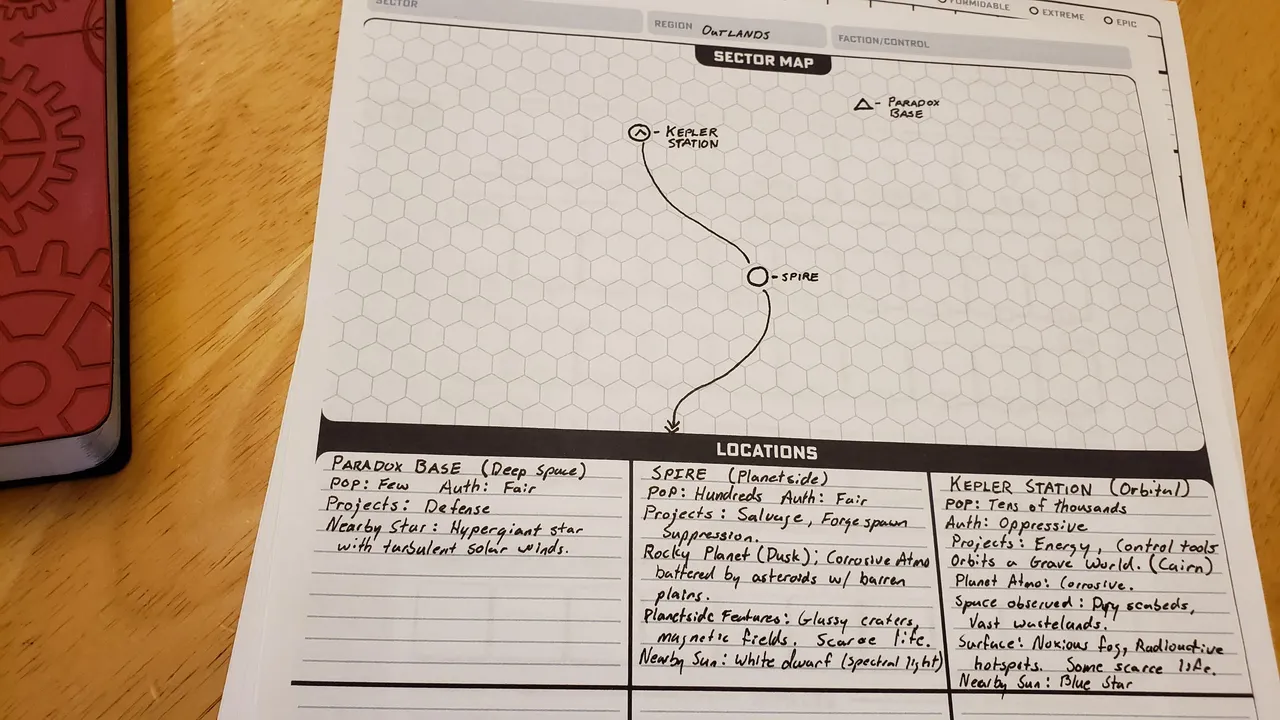 SECTOR
FORMIDABLE
EXTREME
EPIC
REGION OUTLANDS
FACTION/CONTROL
SECTOR MAP
△ - PARADOX
BASE
- KEPLER
STATION
- SPIRE
LOCATIONS
PARADOX BASE (Deep Space)
POP: Few Auth: Fair
Projects: Defense
Nearby Star: Hypergiant star
with turbulent solar winds.
SPIRE (Planetside)
POP: Hundreds Auth: Fair
Projects: Salvage, Forgespawn
Suppression.
Rocky Planet (Dusk); Corrosive Atmo
battered by asteroids w/ barren
plains.
Planetside Features: Glassy craters,
magnetic fields. Scarce life.
Nearby Sun: White dwarf (spectral light)
KEPLER STATION (Orbital)
POP: Tens of thousands
Auth: Oppressive
Projects: Energy, Control tools
Orbits a Grave World. (Cairn)
Planet Atmo: Corrosive.
Space observed: Dry seabeds,
Vast wastelands.
Surface: Noxious fog, Radioactive
hotspots. Some scarce life.
Nearby Sun: Blue Star